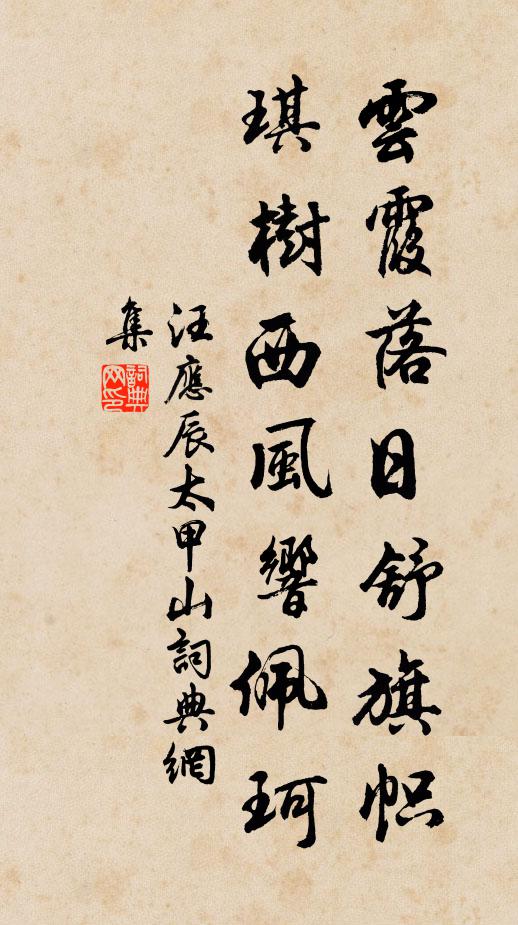 雲霞落日舒旗帜
琪樹西風響佩珂
汪應辰太甲山詞典網
集
詞典網印